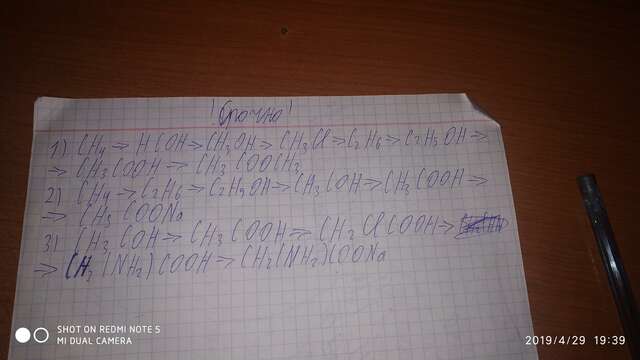 ! Срочно!
1) CH4 → HCOH → CH3OH → CH3Cl → C2H6 → C2H5OH →
→ CH3COOH → CH3COOCH3
2) CH4 → C2H6 → C2H5OH → CH3COH → CH3COOH →
→ CH3COONa
3) CH3COH → CH3COOH → CH2ClCOOH →
→ CH2(NH2)COOH → CH2(NH2)COONa
SHOT ON REDMI NOTE 5
MI DUAL CAMERA
2019/4/29 19:39